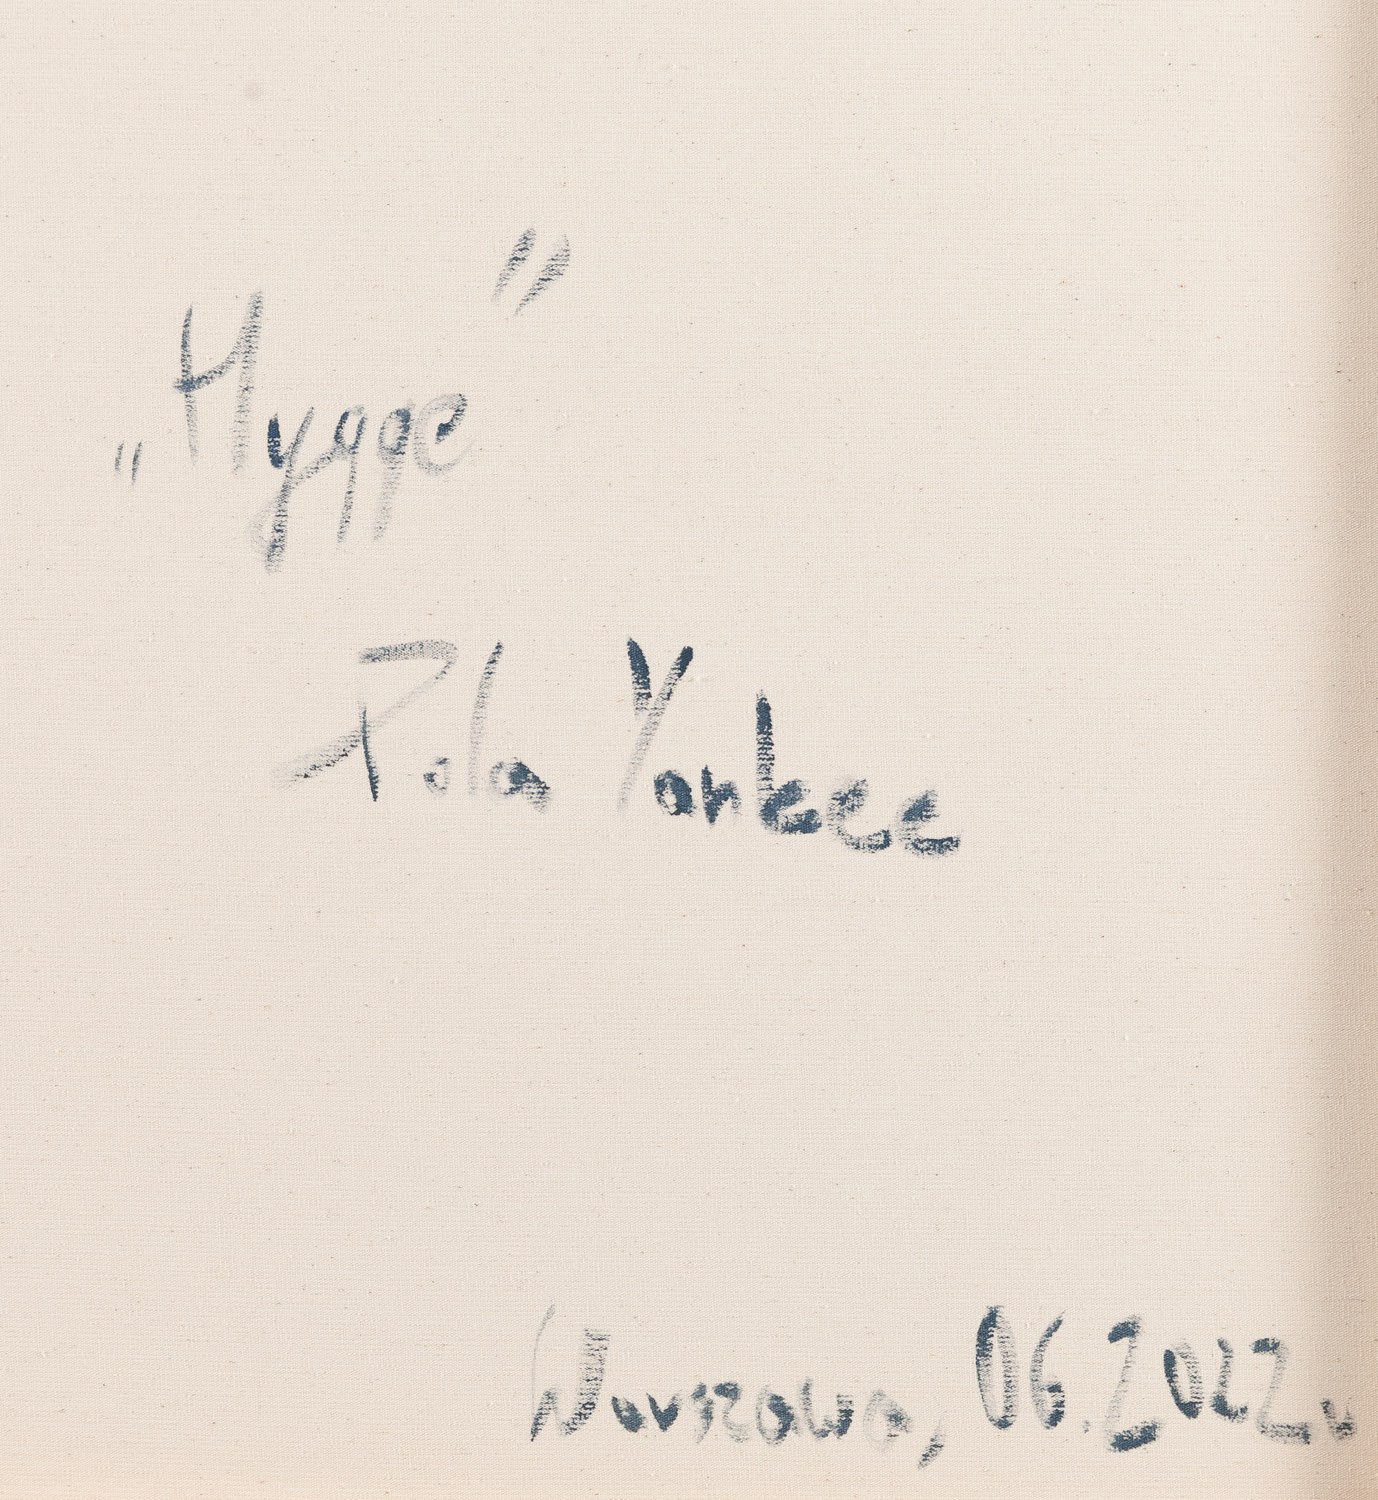 „Hygge”
Pola Yankee
Warszawa, 06.2022r